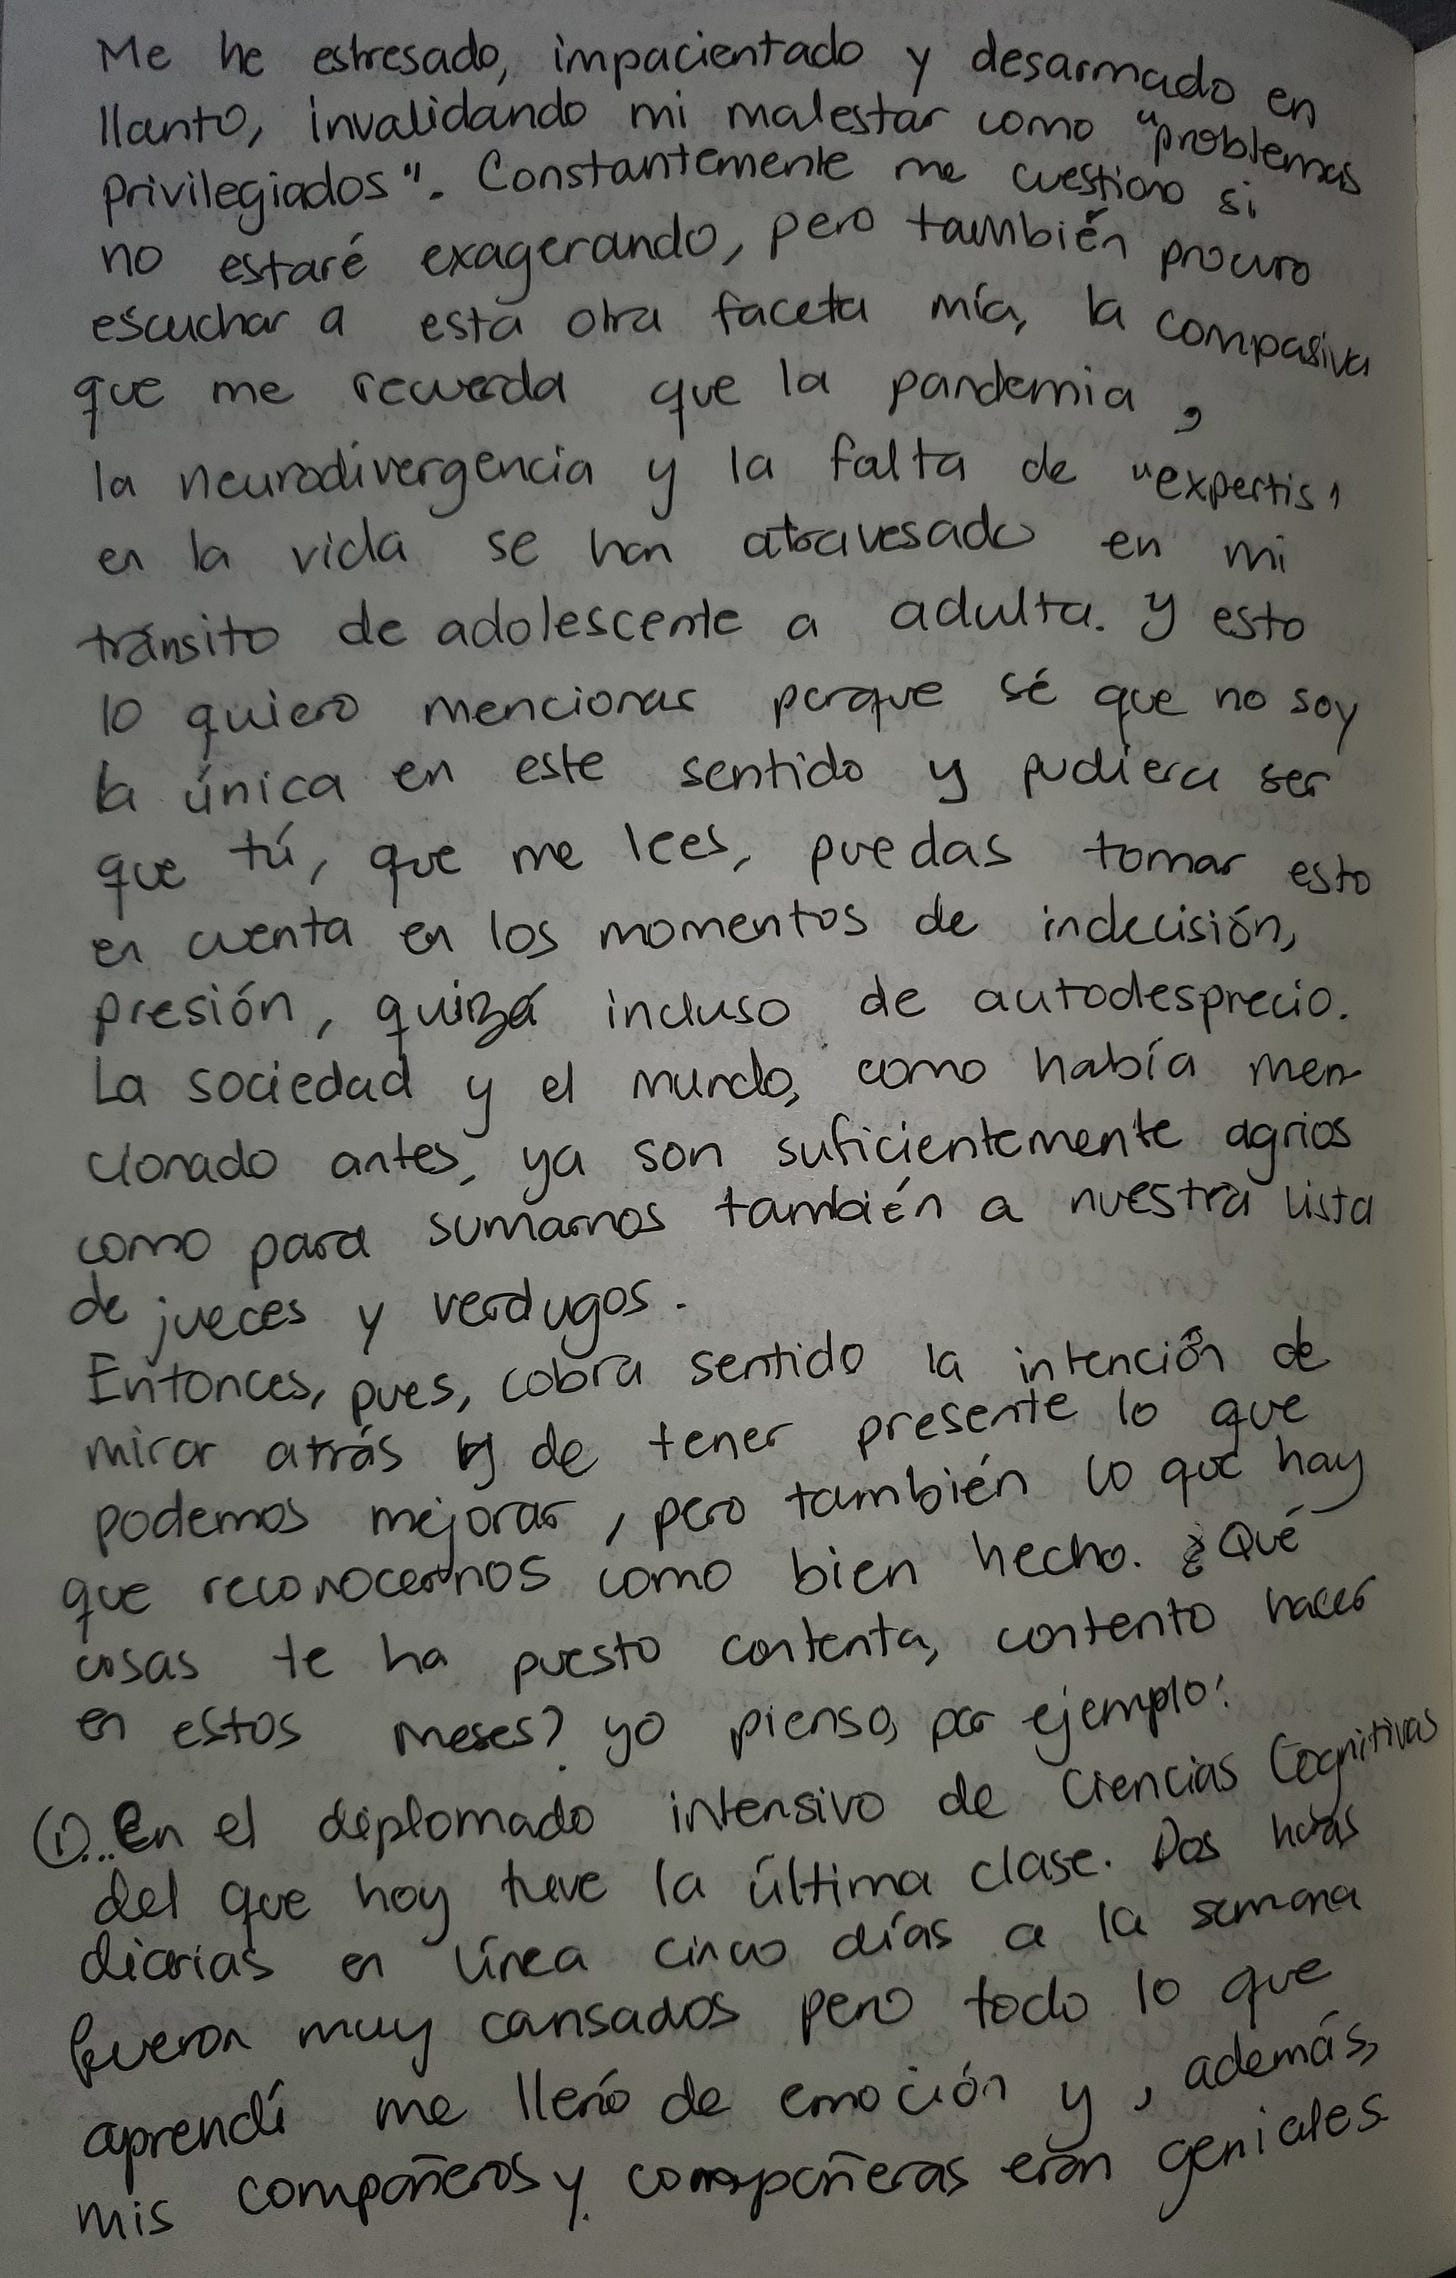 Me he estresado, impacientado y desarmado en
llanto, invalidando mi malestar como "problemas
privilegiados". Constantemente me cuestiono si
no estaré exagerando, pero también procuro
escuchar a esta otra faceta mía, la compasiva
que me recuerda que la pandemia,
la neurodivergencia y la falta de "expertis"
en la vida se han atravesado en mi
tránsito de adolescente a adulta. Y esto
lo quiero mencionar porque sé que no soy
la única en este sentido y pudiera ser
que tú, que me lees, puedas tomar esto
en cuenta en los momentos de indecisión,
presión, quizá incluso de autodesprecio.
La sociedad y el mundo, como había men-
cionado antes, ya son suficientemente agrios
como para sumarnos también a nuestra lista
de jueces y verdugos.
Entonces, pues, cobra sentido la intención de
mirar atrás y de tener presente lo que
podemos mejorar, pero también lo que hay
que reconocernos como bien hecho. ¿Qué
cosas te ha puesto contenta, contento hacer
en estos meses? yo pienso, por ejemplo:
①... En el diplomado intensivo de Ciencias Cognitivas
del que hoy tuve la última clase. Dos horas
diarias en línea cinco días a la semana
fueron muy cansados pero todo lo que
aprendí me llenó de emoción y, además,
mis compañeros y compañeras eran geniales